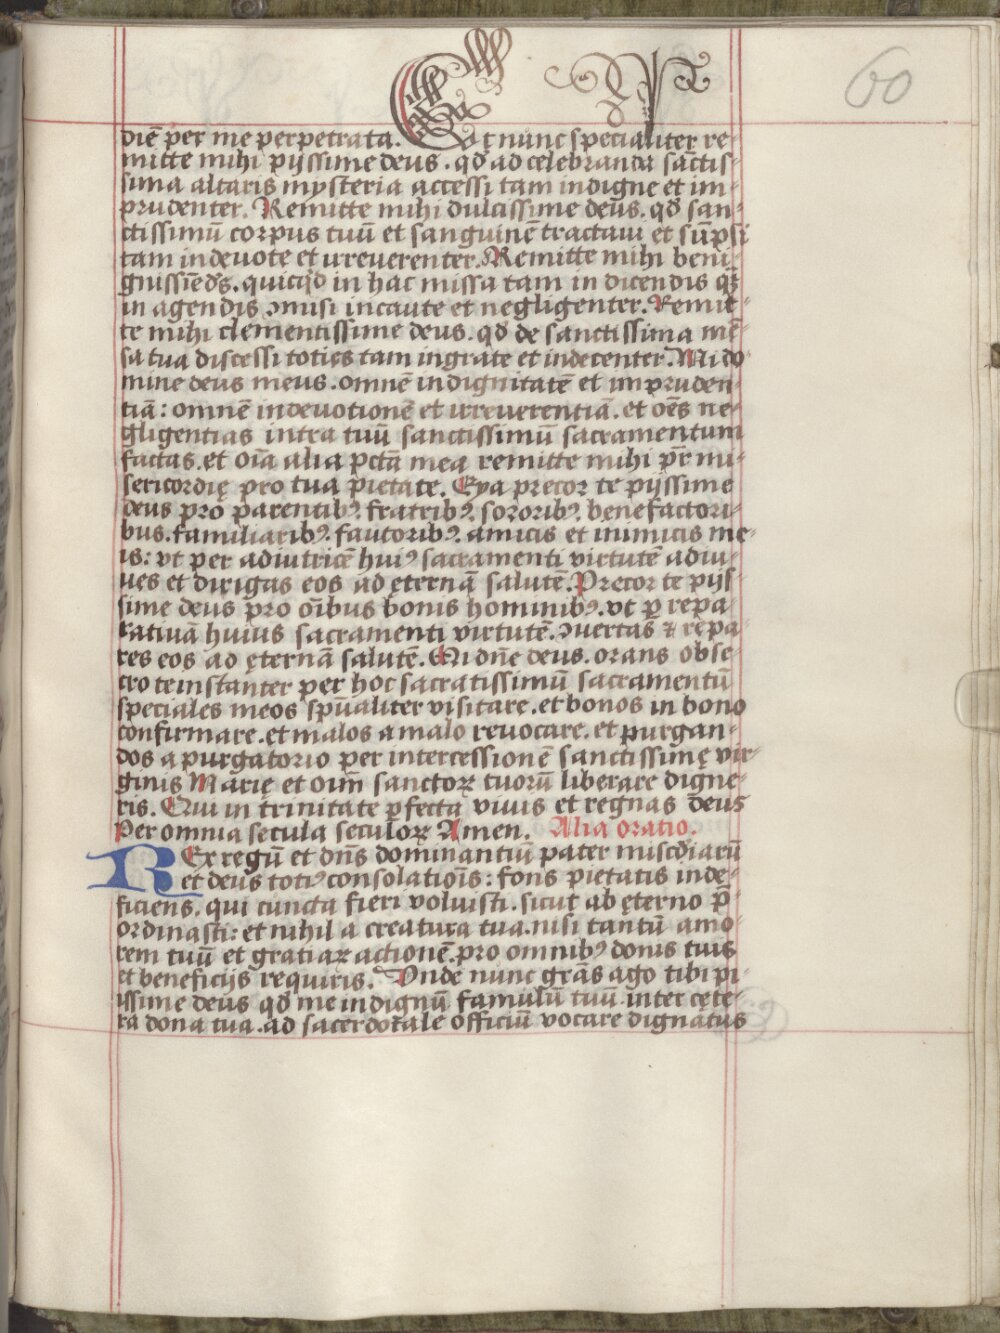 60
diē per me perpetrata. Et nunc specialiter re-
mitte mihi pijssime deus. qđ ad celebranda sāctis-
sima altaris mysteria accessi tam indigne et im-
prudenter. Remitte mihi dulcissime deus. qđ san-
ctissimū corpus tuū et sanguinē tractaui et sūpsi
tam indeuote et irreuerenter. Remitte mihi beni-
gnissīe dꝰs. quicqđ in hac missa tam in dicendis qꝫ
in agendis ɔmisi incaute et negligenter. Remit-
te mihi clementissime deus. qđ de sanctissima mē-
sa tua discessi toties tam ingrate et indecenter. Mi do
mine deus meus. omnē indignitatē et impruden-
tiā: omnē indeuotionē et irreuerentiā. et oēs ne-
gligentias intra tuū sanctissimū sacramentum
factas. et oīa alia pctā mea remitte mihi pr̄ mi-
sericordię pro tua pietate. Eya precor te pijssime
deus pro parentibꝰ. fratribꝰ. sororibꝰ. benefactori-
bus. familiaribꝰ. fautoribꝰ. amicis et inimicis me-
is: vt per adiutricē huiꝰ sacramenti virtutē adiu-
ues et dirigas eos ad ęternā salutē. Precor te pijs-
sime deus pro oībus bonis hominibꝰ. vt ꝑ repa-
ratiuā huius sacramenti virtutē. ɔuertas ⁊ repa-
res eos ad ęternā salutē. Mi dn̄e deus. orans obse-
cro te instanter per hoc sacratissimū sacramentū
speciales meos spūaliter visitare. et bonos in bono
confirmare. et malos a malo reuocare. et purgan-
dos a purgatorio per intercessionē sanctissimę vir-
ginis Marię et oīm sanctoꝝ tuorū liberare digne-
ris. Qui in trinitate ꝑfecta viuis et regnas deus
Per omnia secula seculoꝝ Amen. Alia oratio.
REx regū et dn̄s dominantiū pater miscđiarū
et deus totiꝰ consolatiōis: fons pietatis inde-
ficiens. qui cuncta fieri voluisti. sicut ab ęterno p̄-
ordinasti: et nihil a creatura tua. nisi tantū amo-
rem tuū et gratiaꝝ actionē. pro omnibꝰ donis tuis
et beneficijs requiris. Vnde nunc grās ago tibi pi-
issime deus qđ me indignū famulū tuū. inter cęte-
ra dona tua. ad sacerdotale officiū vocare dignatus